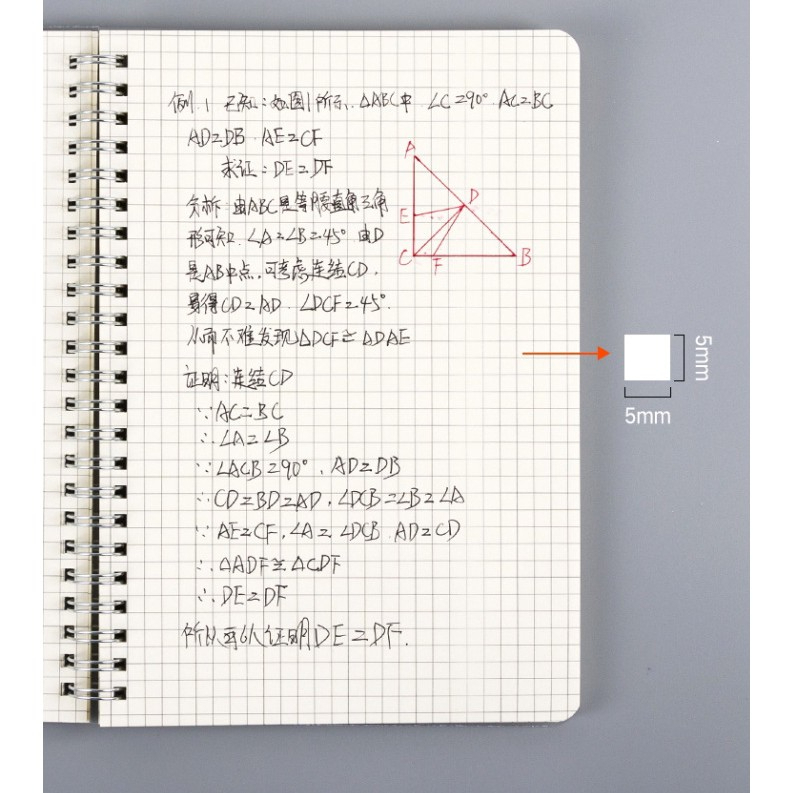 例.1 已知:如图1所示.△ABC中 ∠C=90° AC=BC
AD=DB AE=CF
求证:DE=DF
A
D
E
C
F
B
分析:由ABC是等腰直角三角
形可知.∠A=∠B=45° 由D
是AB中点,可考虑连结CD,
易得CD=AD.∠DCF=45°.
从而不难发现△DCF≌△DAE
证明:连结CD
∵AC=BC
∴∠A=∠B
∵∠ACB=90°,AD=DB
∴CD=BD=AD,∠DCB=∠B=∠A
∵AE=CF,∠A=∠DCB AD=CD
∴△ADF≌△CDF
∴DE=DF
所以可以证明DE=DF.
5mm
5mm